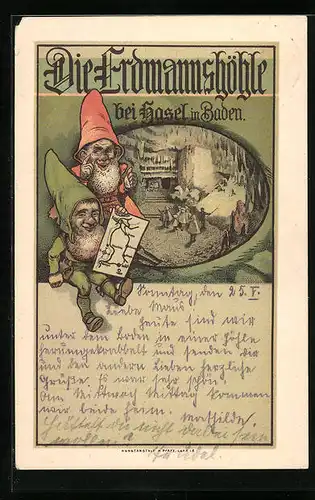 Die Erdmannshöhle
bei Hasel in Baden.
Sonntag, den 25. V.
Liebe Maus!
Heute sind wir
unter dem Boden in einer Höhle
herumgekrabbelt und senden dir
und den andern Lieben herzliche
Grüße. Es war sehr schön.
Am Mittwoch Mittag kommen
wir beide heim. Mathilde.
Hättest du nicht dabei sein
wollen?